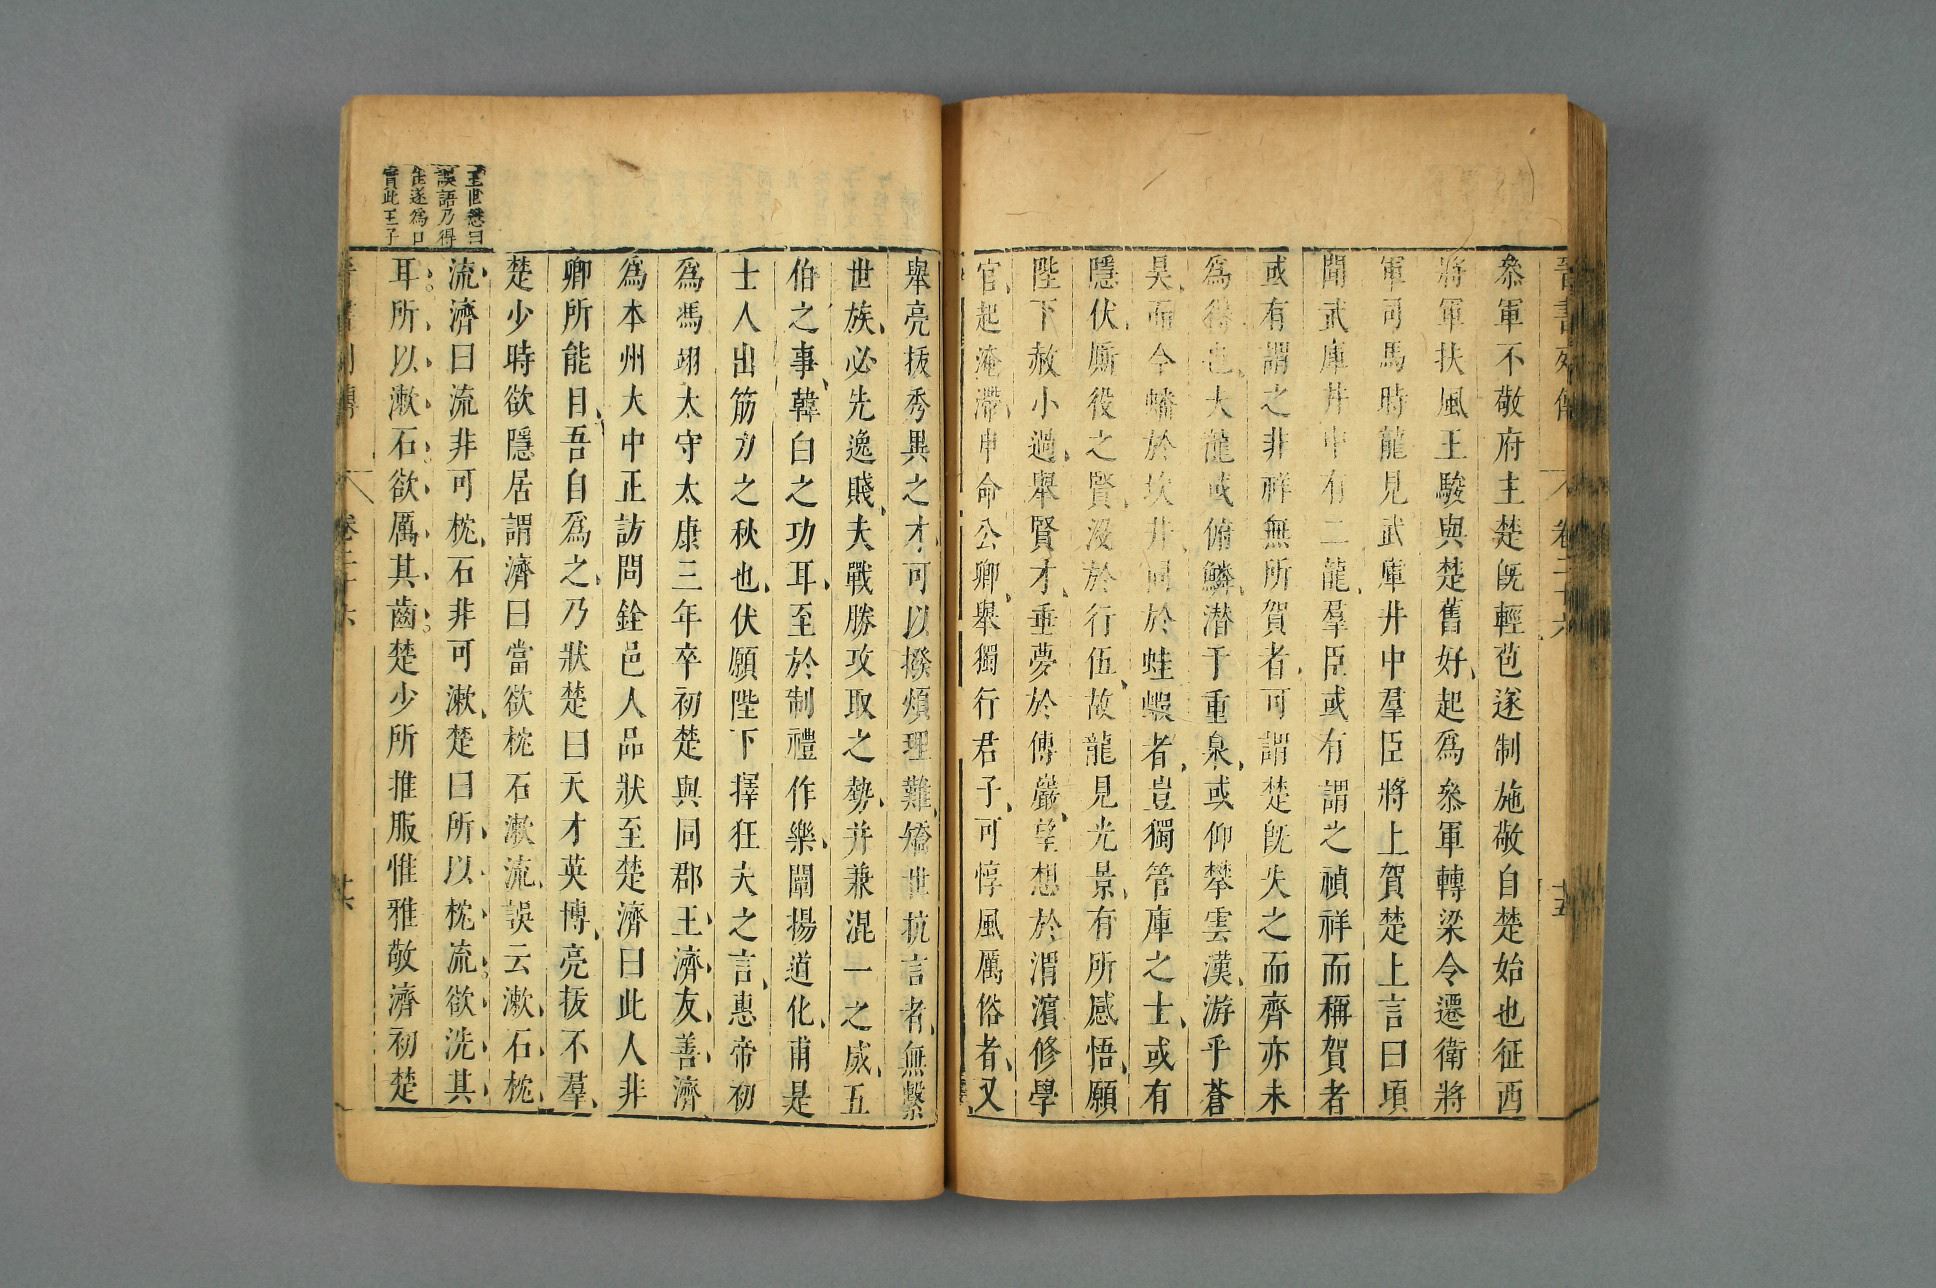 晉書列傳 卷二十六 十五
叅軍不敬府主楚旣輕苞遂制施敬自楚始也征西
將軍扶風王駿與楚舊好起爲叅軍轉梁令遷衛將
軍司馬時龍見武庫井中羣臣將上賀楚上言曰頃
聞武庫井中有二龍羣臣或有謂之禎祥而稱賀者
或有謂之非祥無所賀者可謂楚旣失之而齊亦未
爲得也夫龍或俯鱗潜于重泉或仰攀雲漢游乎蒼
昊而今蟠於坎井同於蛙蝦者豈獨管庫之士或有
隱伏厮役之賢没於行伍故龍見光景有所感悟願
陛下赦小過舉賢才垂夢於傅巖望想於渭濱修學
官起淹滯申命公卿舉獨行君子可惇風厲俗者又
舉亮拔秀異之才可以撥煩理難矯世抗言者無繫
世族必先逸賤夫戰勝攻取之勢并兼混一之威五
伯之事韓白之功耳至於制禮作樂闡揚道化甫是
士人出筋力之秋也伏願陛下擇狂夫之言惠帝初
爲馮翊太守太康三年卒初楚與同郡王濟友善濟
爲本州大中正訪問銓邑人品狀至楚濟曰此人非
卿所能目吾自爲之乃狀楚曰天才英博亮拔不羣
楚少時欲隱居謂濟曰當欲枕石漱流誤云漱石枕
流濟曰流非可枕石非可漱楚曰所以枕流欲洗其
耳所以漱石欲厲其齒楚少所推服惟雅敬濟初楚
王世懋曰
誤語乃得
佳遂爲口
實此王子
晉書列傳 卷二十六 十六